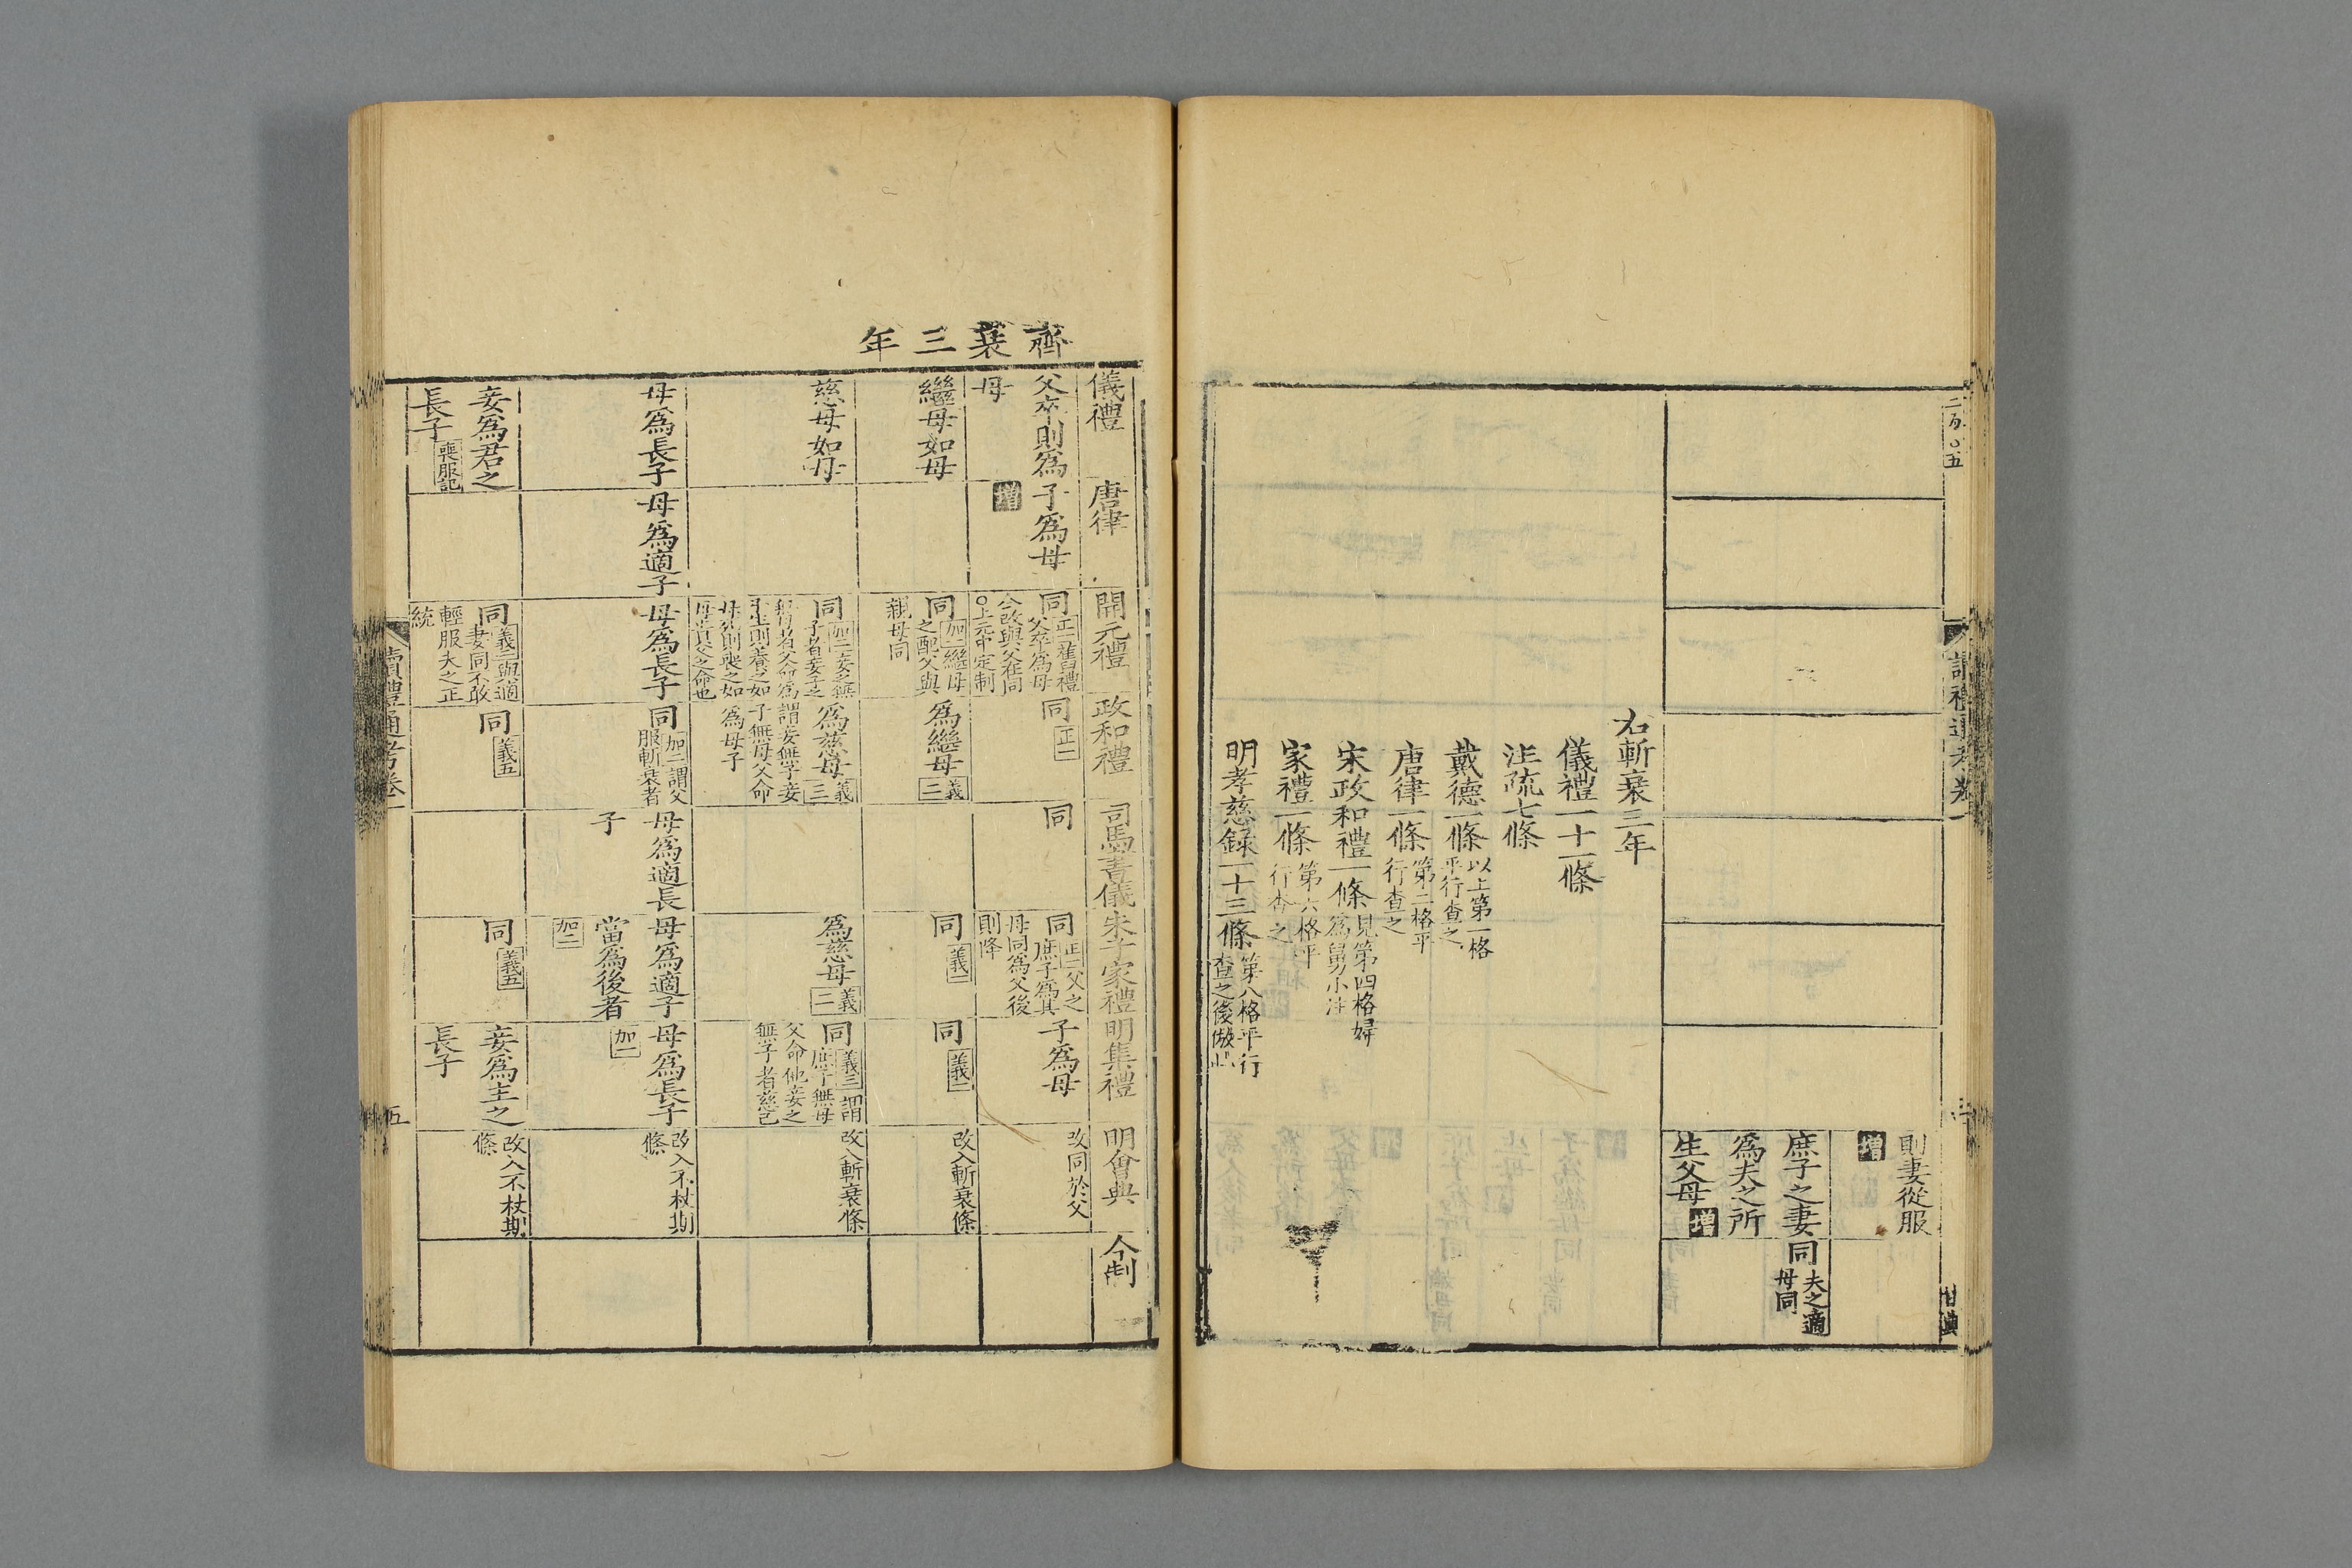 則妻從服
增
庶子之妻
爲夫之所
生父母增
同夫之適
母同
右斬衰三年
儀禮一十一條
注疏七條
戴德一條以上第一格
平行查之
唐律一條第二格平
行查之
宋政和禮一條見第四格婦
爲舅小注
家禮一條第六格平
行查之
明孝慈録一十三條第八格平行
查之後倣此
齊衰三年
儀禮
唐律
開元禮
政和禮
司馬書儀
朱子家禮
明集禮
明會典
今制
父卒則爲
母
子爲母
增
同正二舊禮
父卒爲母
今改與父在同
○上元中定制
同正二
同
同正二父之
庶子爲其
母同爲父後
則降
子爲母
改同於父
繼母如母
同加一繼母
之配父與
親母同
爲繼母義二
同義二
同義二
改入斬衰條
慈母如母
同加二妾之無
子者妾子之
無母者父命爲
母子生則養之如
母死則喪之如
母貴父之命也
爲慈母義三
謂妾無子妾
子無母父命
爲母子
爲慈母義二
同義三謂
庶子無母
父命他妾之
無子者慈己
改入斬衰條
母爲長子
母爲適子
母爲長子
同加一謂父
服斬衰者
母爲適長
子
母爲適子
當爲後者
加二
母爲長子
加一
改入不杖期
條
妾爲君之
長子喪服記
同義三與適
妻同不敢
輕服夫之正
統
同義五
同義五
妾爲主之
長子
改入不杖期
條
讀禮通考卷一
五